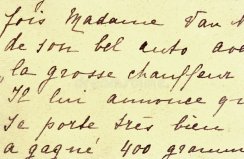 fois Madame Van
de son bel auto ave
„la grosse chauffeur
Il lui annonce qu
se porte très bien
a gagné 400 gramm